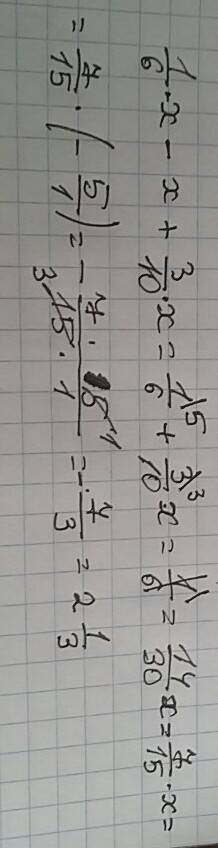 1/6 · x - x + 3/10 · x = 1\5/6 + 3\3/10 x = 1\/6 = 14/30 x = 7/15 · x =
= 7/15 · (- 5/1) = - 7 · 5 1/3 15 · 1 = - 7/3 = 2 1/3